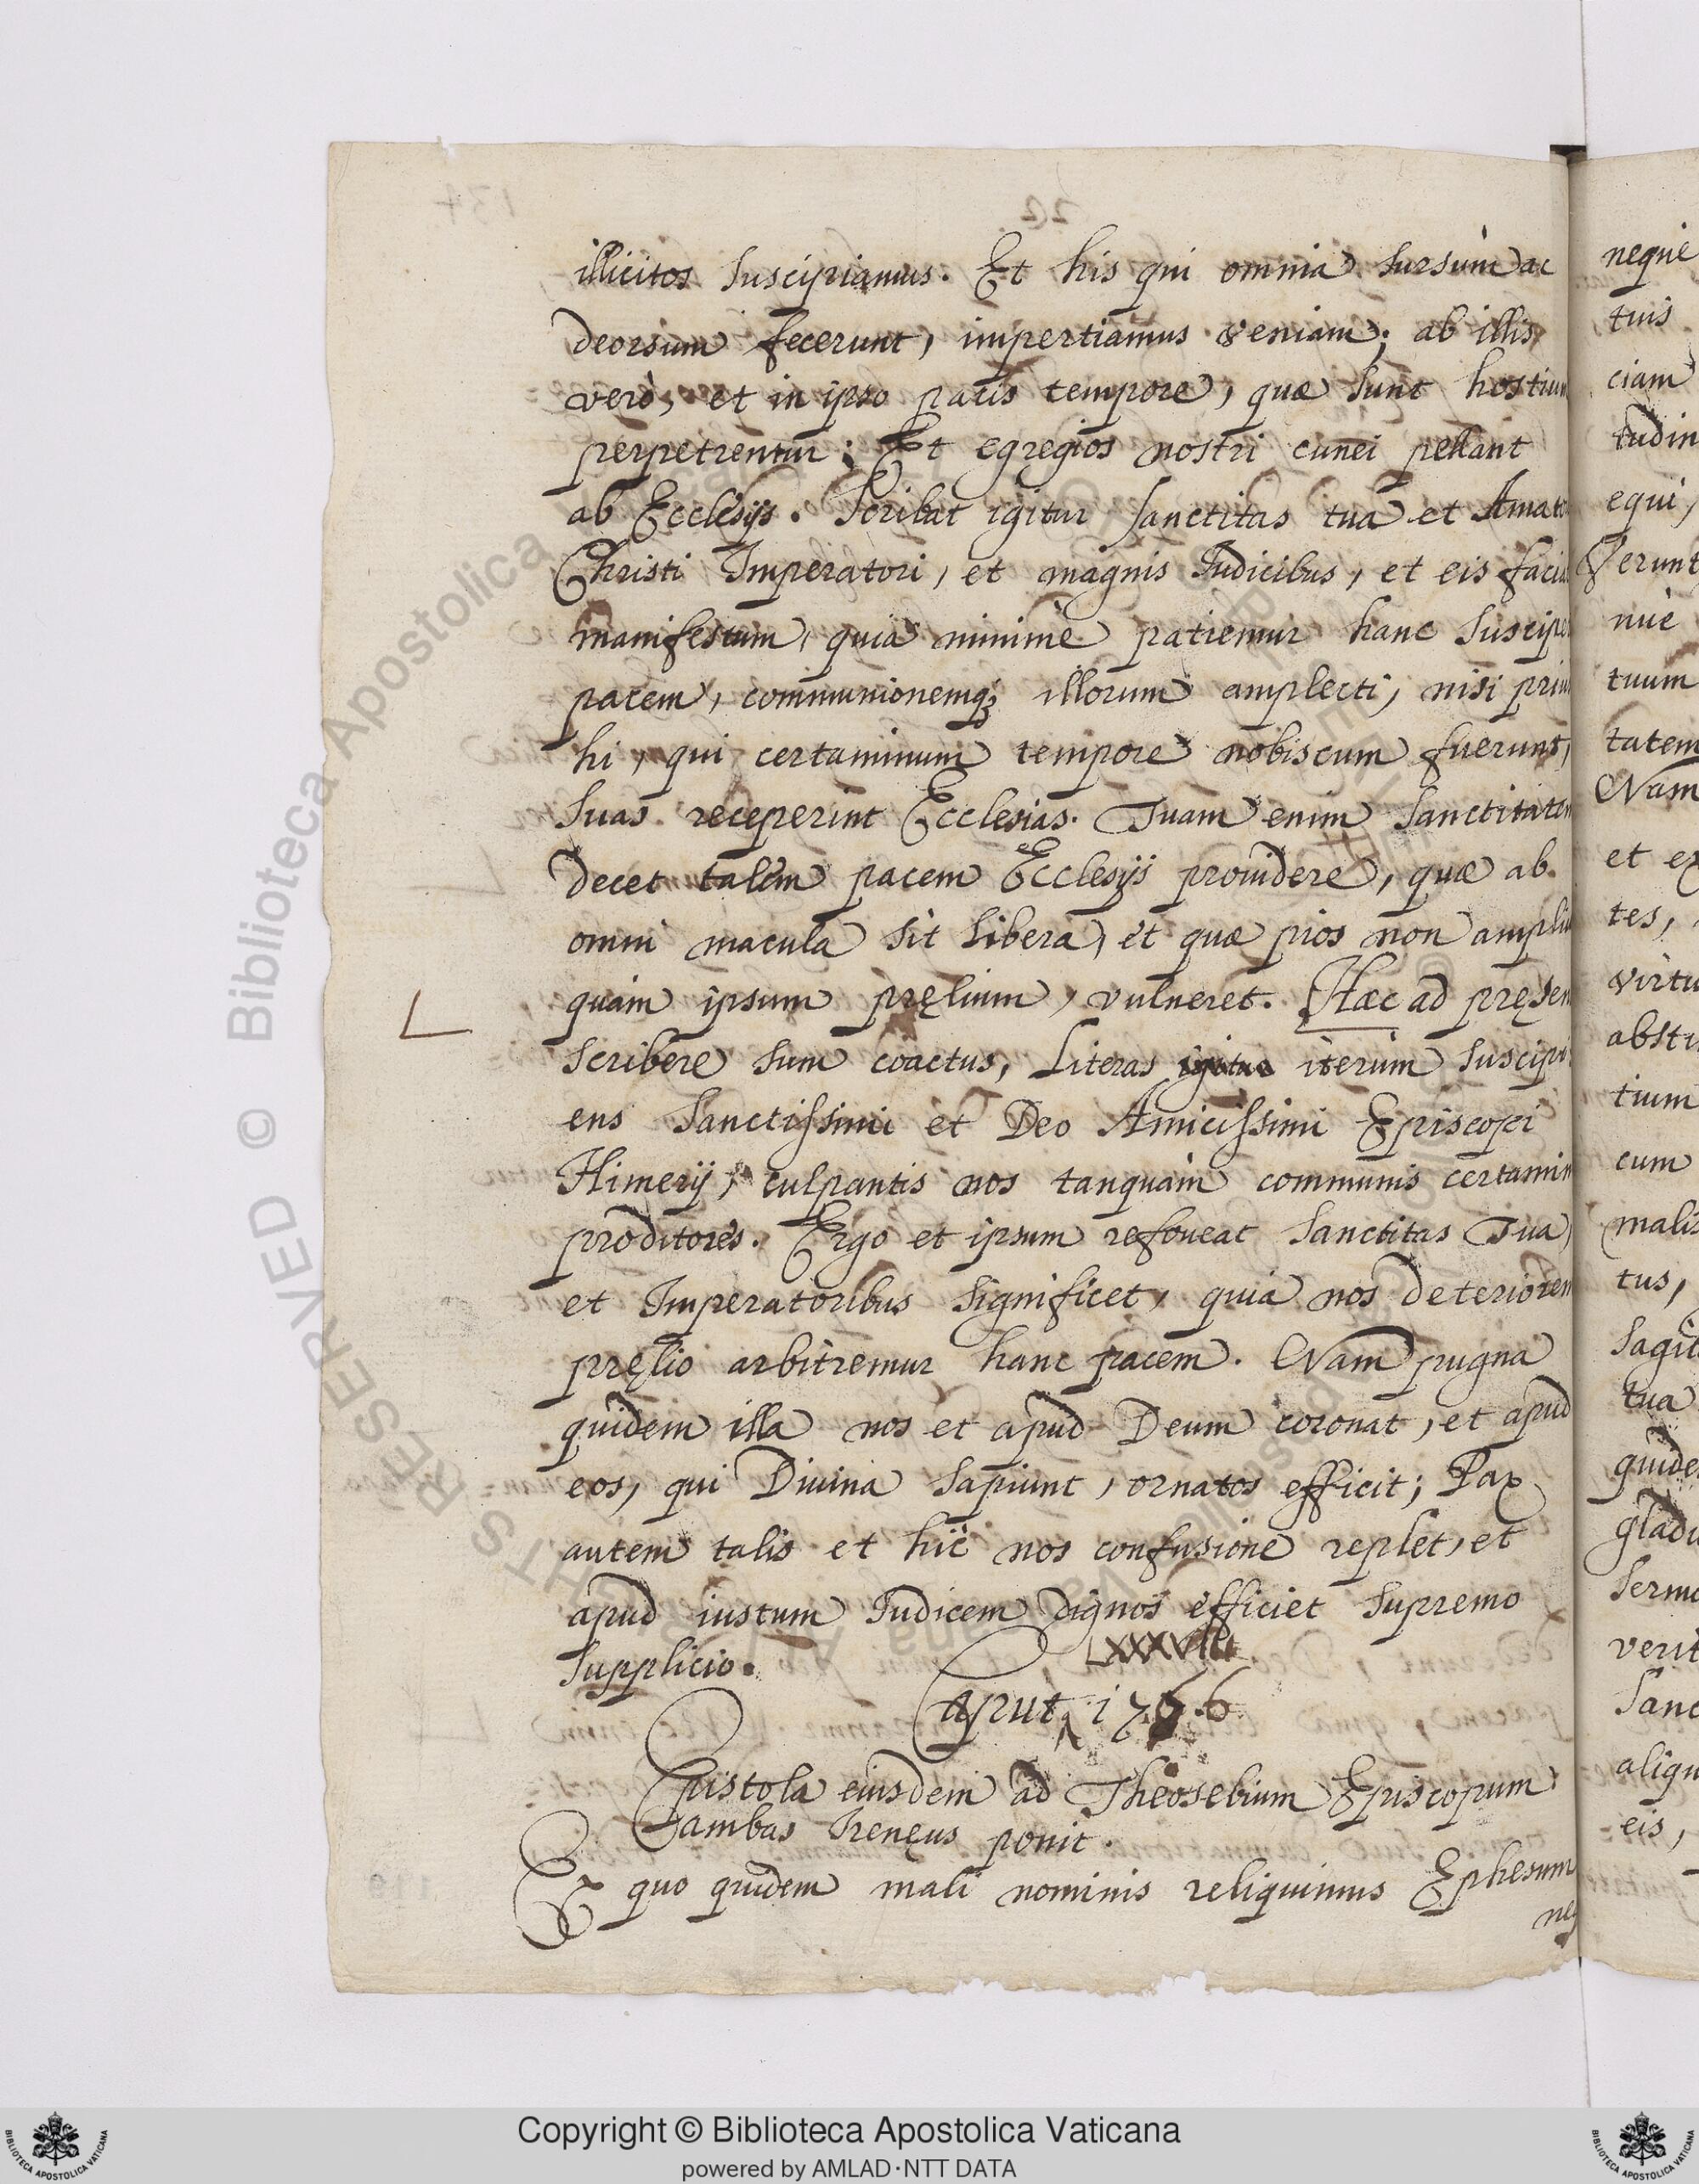 illicitos suscipiamus. Et his qui omnia sursùm ac
deorsum fecerunt, impertiamus veniam; ab illis
verò, et in ipso pacis tempore, quæ sunt hostium
perpetrentur; Et egregios nostri cunei pellant
ab Ecclesijs. Scribat igitur sanctitas tua et Amato
Christi Imperatori, et magnis Iudicibus, et eis facia
manifestum, quia minimè patiemur hanc suscipe
pacem, communionemq; illorum amplecti, nisi priu
hi, qui certaminum tempore nobiscum fuerunt,
suas receperint Ecclesias. Tuam enim sanctitatem
decet talem pacem Ecclesijs prouidere, quæ ab
omni macula sit libera, et quæ pios non ampliu
quàm ipsum pręlium, vulneret. Hæc ad pręsen
scribere sum coactus, Literas igitur iterùm suscipi
ens sanctissimi et Deo Amicissimi Episcopi
Himerij, culpantis nos tanquàm communis certamin
proditores. Ergo et ipsum refoueat sanctitas Tua,
et Imperatoribus significet, quia nos deteriorem
pręlio arbitremur hanc pacem. Nam pugna
quidem illa nos et apud Deum coronat, et apud
eos, qui Diuina sapiunt, ornatos efficit; Pax
autem talis et hîc nos confusione replet, et
apud iustum Iudicem dignos efficiet supremo
supplicio.
LXXXVIII
Caput 176
Epistola eiusdem ad Theosebium Episcopum
Cambas Irenęus ponit.
Ex quo quidem mali nominis reliquimus Ephesum
neq
neque
tuis
ciam
tudin
equi,
erunt
nue
tuum
tatem
Nam
et ex
tes,
virtu
absti
tium
cum
malis
tus,
sagit
tua
quide
gladi
sermo
verit
sanc
aliqu
eis,
Copyright © Biblioteca Apostolica Vaticana
powered by AMLAD·NTT DATA